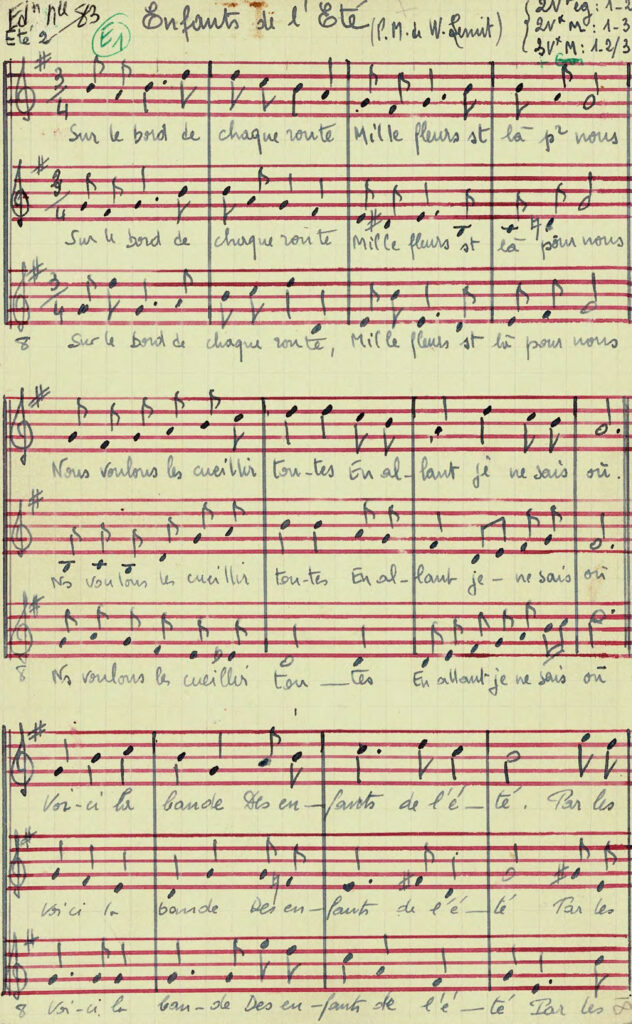 Edⁿ Nˡˡᵉ 83
Eté 2
E1
Enfants de l'Eté
(P.M. de W. Lemit)
2Vˣ M : 1-3
3Vˣ M : 1-2/3
3/4
Sur le bord de chaque route Mille fleurs st là pʳ nous
3/4
Sur le bord de chaque route Mille fleurs st là pour nous
3/4
8 Sur le bord de chaque route, Mille fleurs st là pour nous
Nous voulons les cueillir tou-tes En al-lant je ne sais où.
Ns voulons les cueillir tou-tes En al-lant je - ne sais où
8 Ns voulons les cueillir tou - tes En allant je ne sais où
Voi-ci la bande Des en-fants de l'é-té. Par les
Voici la bande Des en-fants de l'é-té Par les
8 Voi-ci la ban-de Des en-fants de l'é-té Par les